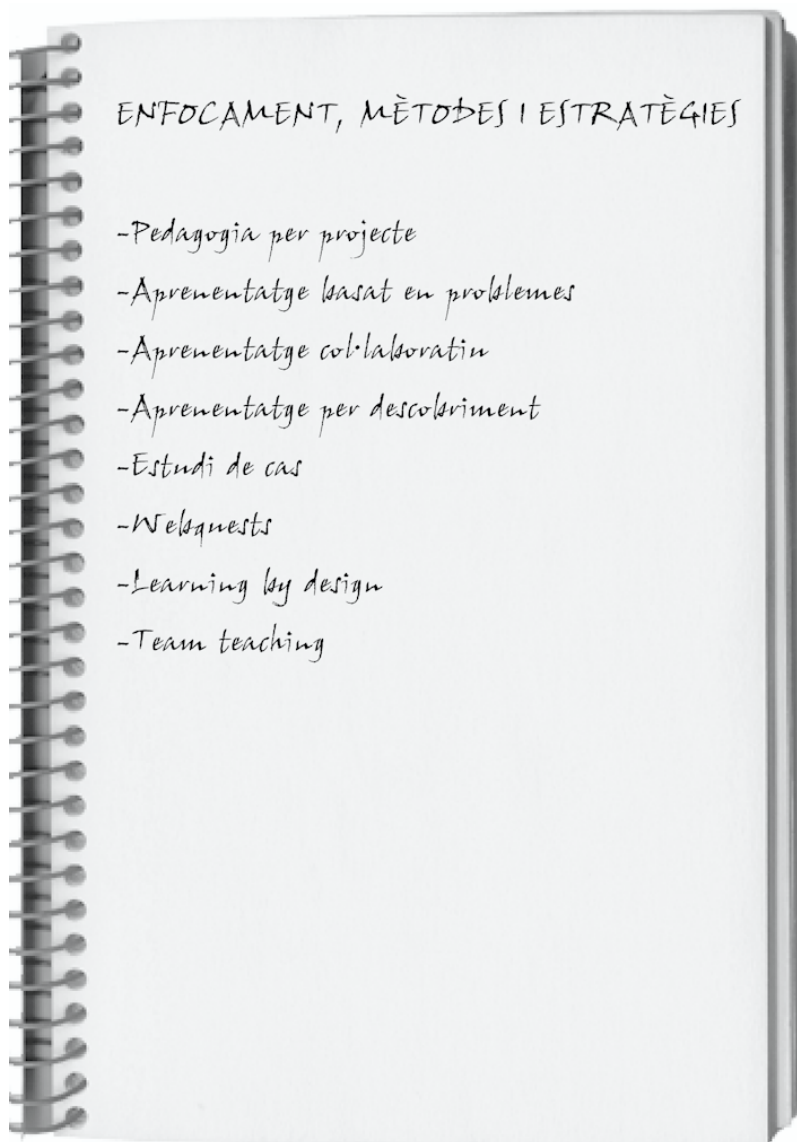 ENFOCAMENT, MÈTODES I ESTRATÈGIES
-Pedagogia per projecte
-Aprenentatge basat en problemes
-Aprenentatge col·laboratiu
-Aprenentatge per descobriment
-Estudi de cas
-Webquests
-Learning by design
-Team teaching